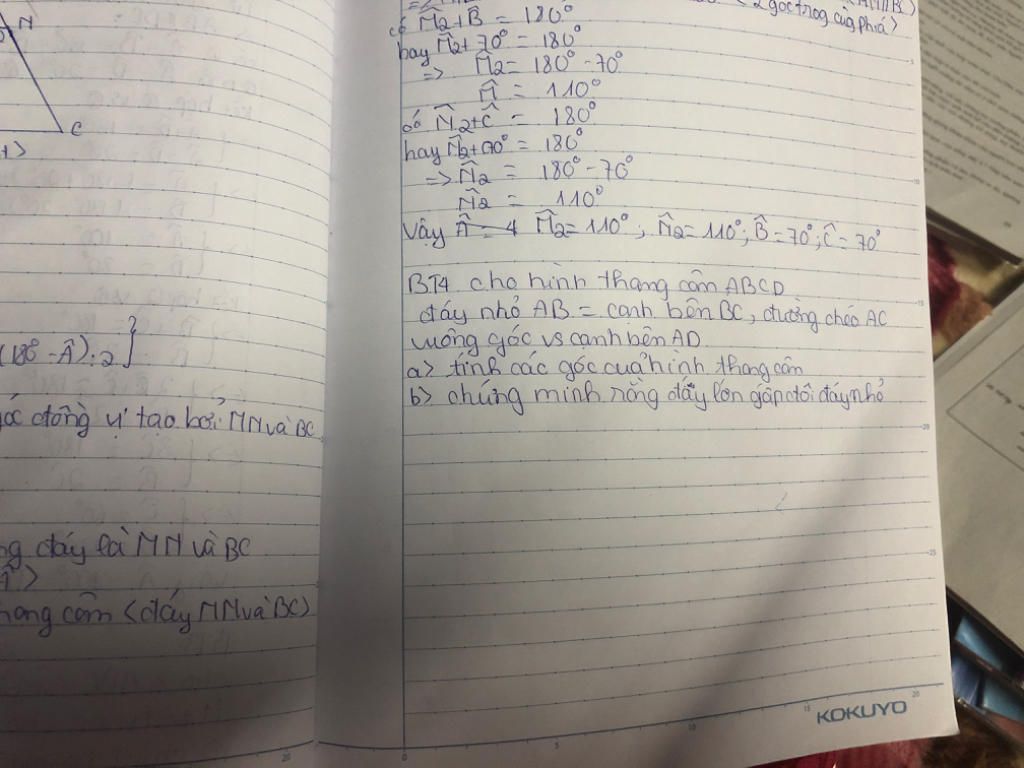 N
C
(180° - Â):2}
đồng vị tạo bởi MN và BC
đáy là MN và BC
cân <đáy MN và BC>
2 góc trog cùg phía>
có M̂2+B = 180°
hay M̂2+ 70° = 180°
=> M̂2= 180° -70°
M̂ = 110°
có N̂2+Ĉ = 180°
hay N̂2+70° = 180°
=> N̂2 = 180° - 70°
N̂2 = 110°
Vậy M̂2=110°; N̂2=110°; B̂=70°; Ĉ= 70°
BT4 cho hình thang cân ABCD
đáy nhỏ AB = cạnh bên BC, đường chéo AC
vuông góc vs cạnh bên AD
a> tính các góc của hình thang cân
b> chứng minh rằng đáy lớn gấp đôi đáy nhỏ
KOKUYO